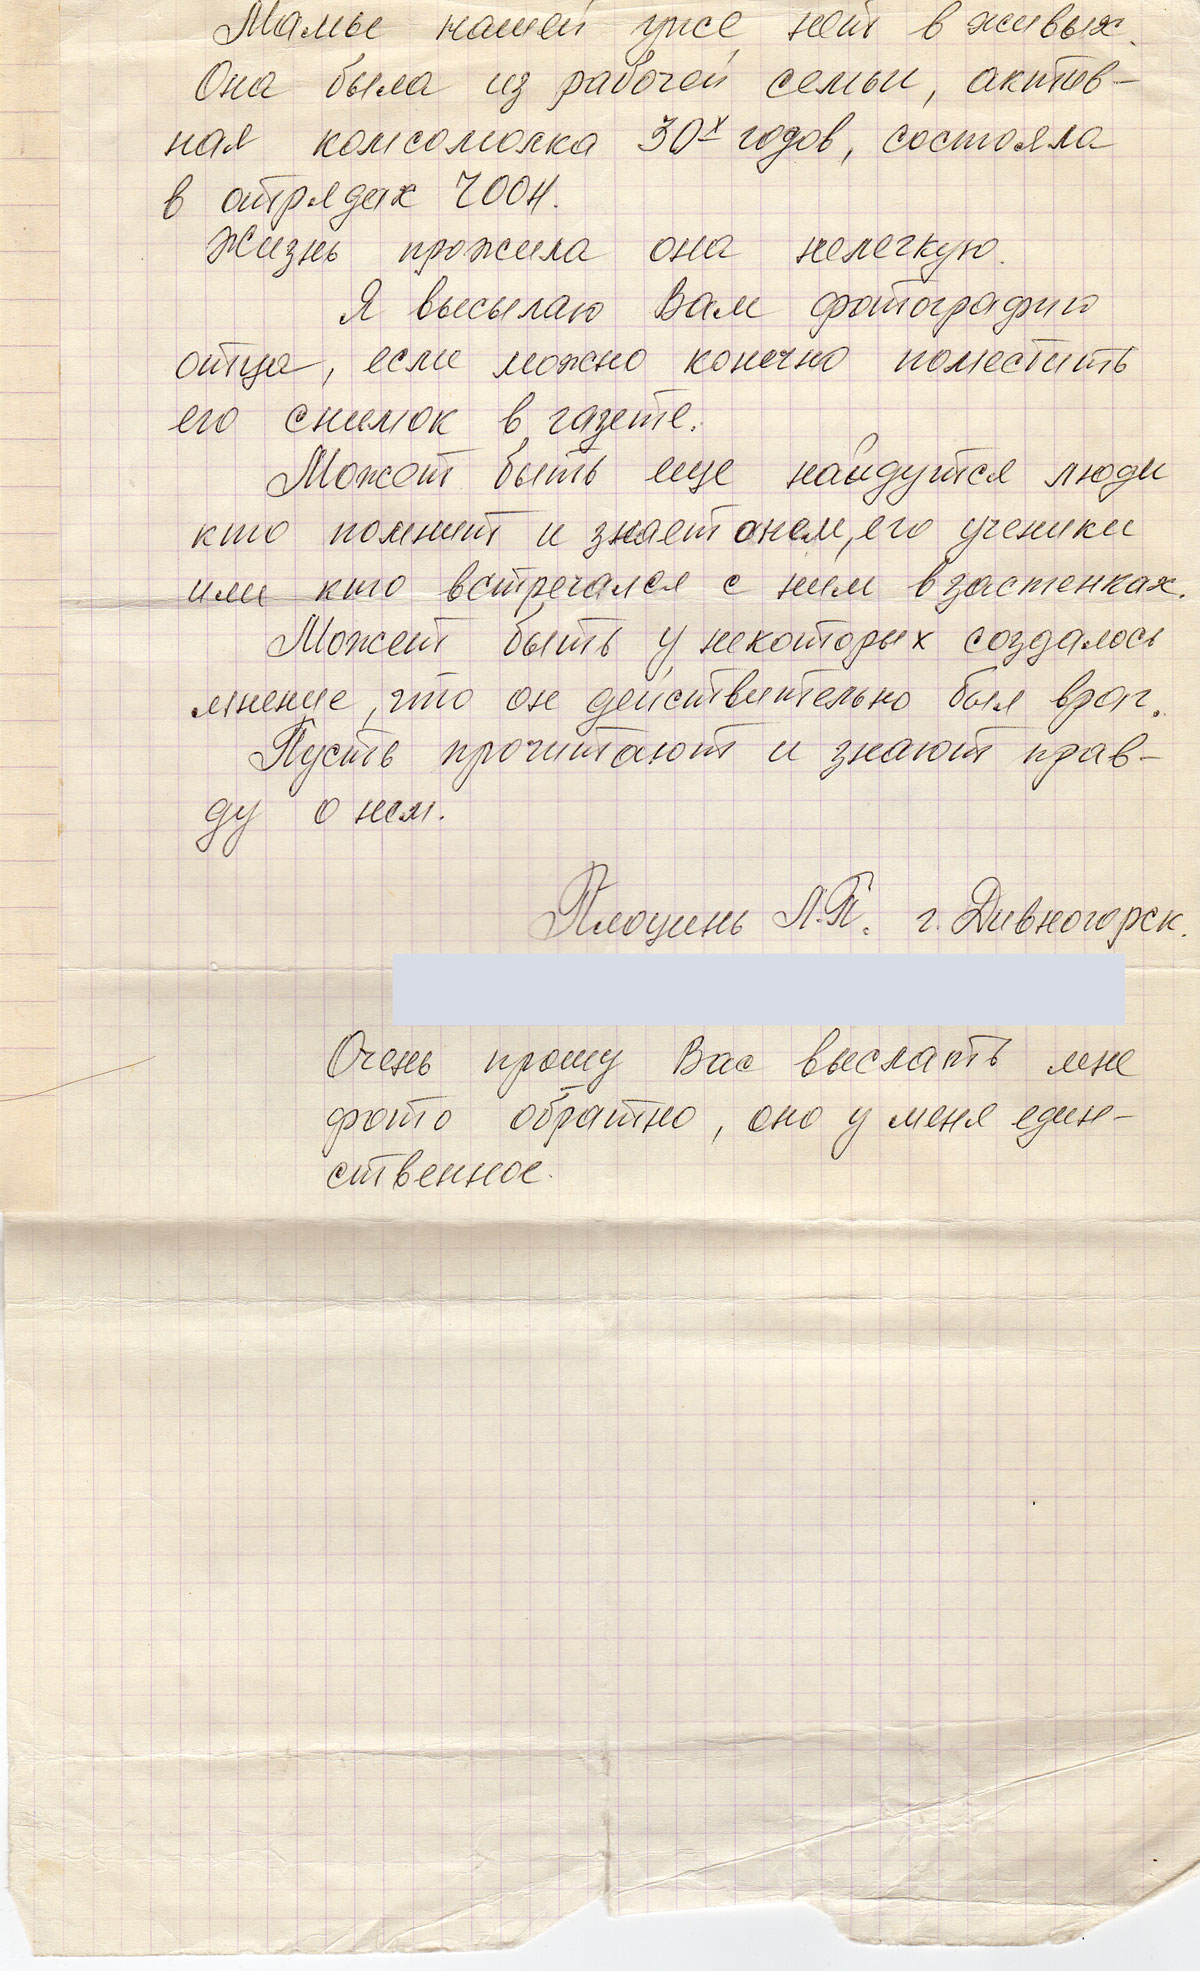 Мамы нашей уже нет в живых.
Она была из рабочей семьи, актив-
ная комсомолка 30х годов, состояла
в отрядах ЧООН.
Жизнь прожила она нелегкую.
Я высылаю Вам фотографию
отца, если можно конечно поместить
его снимок в газете.
Может быть еще найдутся люди
кто помнит и знает о нем, его ученики
или кто встречался с ним в застенках.
Может быть у некоторых создалось
мнение, что он действительно был враг.
Пусть прочитают и знают прав-
ду о нем.
Плоцинь Л.П. г. Дивногорск.
Очень прошу Вас выслать мне
фото обратно, оно у меня един-
ственное.